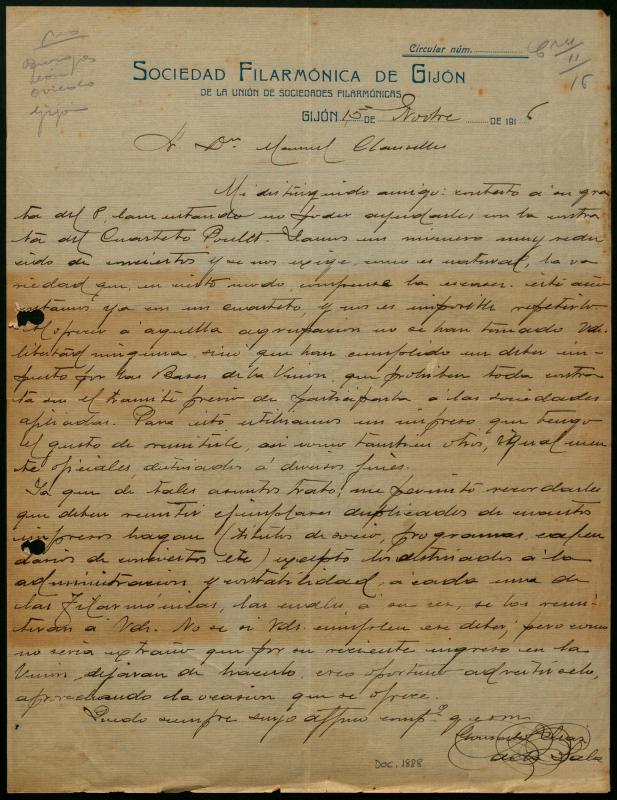 Circular núm.
SOCIEDAD FILARMÓNICA DE GIJÓN
DE LA UNIÓN DE SOCIEDADES FILARMÓNICAS
GIJÓN 15 DE Novbre DE 1916
Burgos
León
Oviedo
Gijón
11
16
Sr Dn Manuel Clausells
Mi distinguido amigo: contesto á su gra
ta del 8, lamentando no poder ayudarles en la contra
ta del Cuarteto Poulet. Damos un número muy redu
cido de conciertos y se nos exige, como es natural, la va
riedad que, en cierto modo, compense la escasez. Este año
contamos ya con un cuarteto, y nos es imposible repetirlo.
Al ofrecer a aquella agrupacion no se han tomado Vds.
libertad ninguna, sinó que han cumplido un deber im-
puesto por las Bases de la Union, que prohiben toda contra
ta sin el trámite previo de participarla a las sociedades
afiliadas. Para esto utilizamos un impreso que tengo
el gusto de remitirle, asi como tambien otros, igualmen
te oficiales destinados á diversos fines.
Ya que de tales asuntos trato, me permito recordarles
que deben remitir ejemplares duplicados de cuanto
impresos hagan (titulos de socio, programas, calen
darios de conciertos etc) excepto los destinados á la
administracion y contabilidad, a cada una de
las Filarmónicas, las cuales, á su vez, se los remi-
tiran á Vds. No se si Vds. cumplen ese deber; pero como
no seria extraño que por su reciente ingreso en la
Union, dejaran de hacerlo, creo oportuno advertirselo,
aprovechando la ocasion que se ofrece.
Quedo siempre suyo affmo comp.º q e s m
de la Sala
DOC. 1888